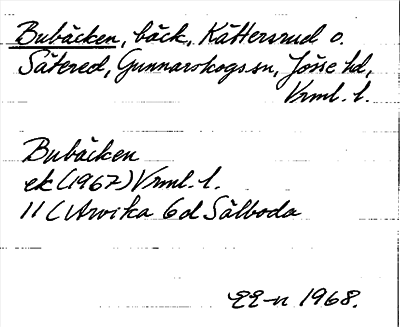 Bubäcken, bäck, Kättersrud o.
Sätered, Gunnarskogs sn, Jösse hd,
Vrml. l.
Bubäcken
ek (1967) Vrml. l.
11 C Arvika 6d Sälboda
1968.